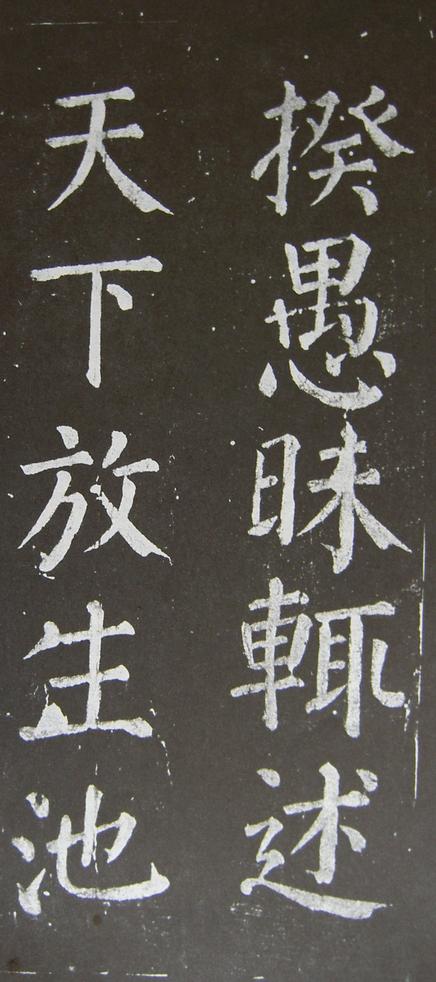 揆愚昧輙述
天下放生池